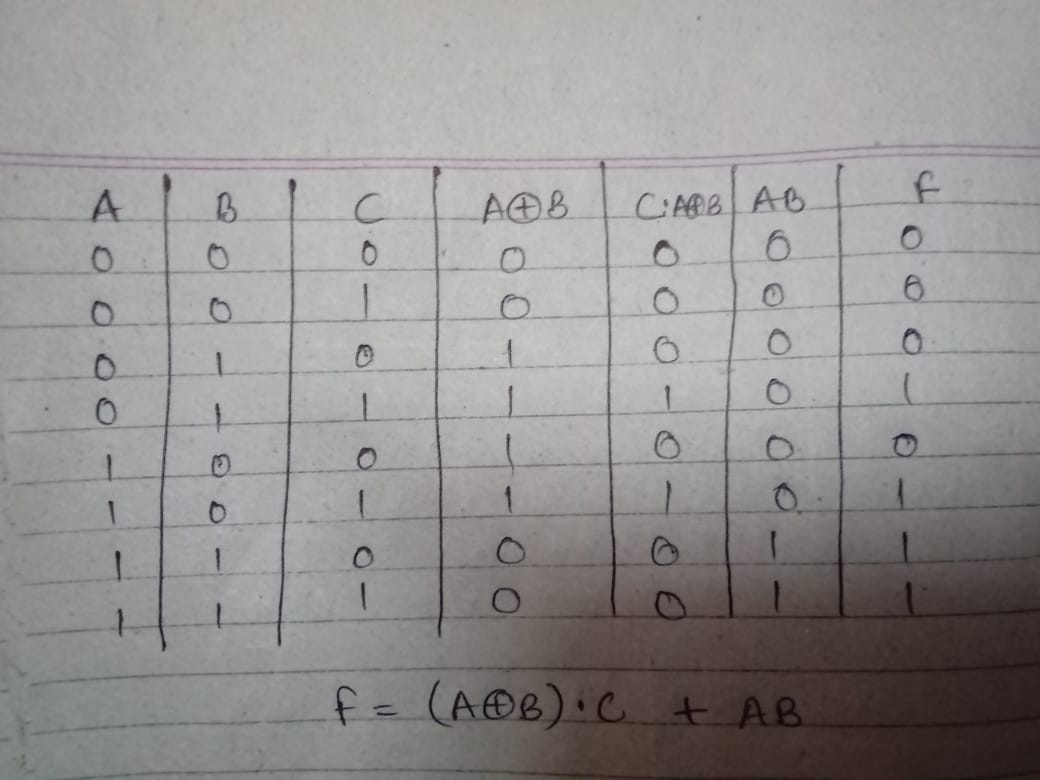 A B C A⊕B C·A⊕B AB f
0 0 0 0 0 0 0
0 0 1 0 0 0 0
0 1 0 1 0 0 0
0 1 1 1 1 0 1
1 0 0 1 0 0 0
1 0 1 1 1 0 1
1 1 0 0 0 1 1
1 1 1 0 0 1 1
f = (A⊕B)·C + AB